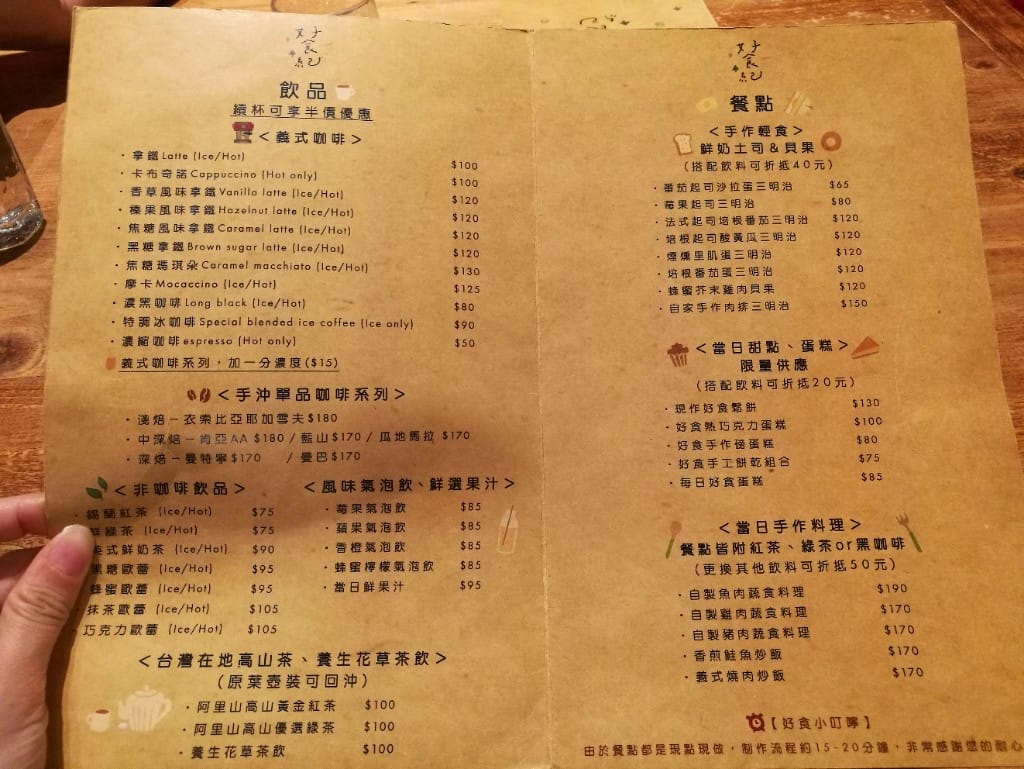 好食記
飲品
續杯可享半價優惠
<義式咖啡>
・拿鐵Latte (Ice/Hot) $100
・卡布奇諾Cappuccino (Hot only) $100
・香草風味拿鐵Vanilla latte (Ice/Hot) $120
・榛果風味拿鐵Hazelnut latte (Ice/Hot) $120
・焦糖風味拿鐵Caramel latte (Ice/Hot) $120
・黑糖拿鐵Brown sugar latte (Ice/Hot) $120
・焦糖瑪琪朵Caramel macchiato (Ice/Hot) $130
・摩卡Mocaccino (Ice/Hot) $125
・濃黑咖啡Long black (Ice/Hot) $80
・特調冰咖啡Special blended ice coffee (Ice only) $90
・濃縮咖啡espresso (Hot only) $50
義式咖啡系列，加一分濃度($15)
<手沖單品咖啡系列>
・淺焙－衣索比亞耶加雪夫$180
・中深焙－肯亞AA $180 / 藍山$170 / 瓜地馬拉 $170
・深焙－曼特寧$170 / 曼巴$170
<非咖啡飲品>
錫蘭紅茶 (Ice/Hot) $75
綠茶 (Ice/Hot) $75
英式鮮奶茶 (Ice/Hot) $90
黑糖歐蕾 (Ice/Hot) $95
蜂蜜歐蕾 (Ice/Hot) $95
・抹茶歐蕾 (Ice/Hot) $105
・巧克力歐蕾 (Ice/Hot) $105
<風味氣泡飲、鮮選果汁>
・莓果氣泡飲 $85
・蘋果氣泡飲 $85
・香橙氣泡飲 $85
・蜂蜜檸檬氣泡飲 $85
・當日鮮果汁 $95
<台灣在地高山茶、養生花草茶飲>
(原葉壺裝可回沖)
・阿里山高山黃金紅茶 $100
・阿里山高山優選綠茶 $100
・養生花草茶飲 $100
好食記
餐點
<手作輕食>
鮮奶土司＆貝果
(搭配飲料可折抵40元)
・番茄起司沙拉蛋三明治 $65
・莓果起司三明治 $80
・法式起司培根番茄三明治 $120
・培根起司酸黃瓜三明治 $120
・煙燻里肌蛋三明治 $120
・培根番茄蛋三明治 $120
・蜂蜜芥末雞肉貝果 $120
・自家手作肉排三明治 $150
<當日甜點、蛋糕>
限量供應
(搭配飲料可折抵20元)
・現作好食鬆餅 $130
・好食熱巧克力蛋糕 $100
・好食手作磅蛋糕 $80
・好食手工餅乾組合 $75
・每日好食蛋糕 $85
<當日手作料理>
餐點皆附紅茶、綠茶or黑咖啡
(更換其他飲料可折抵50元)
・自製魚肉蔬食料理 $190
・自製雞肉蔬食料理 $170
・自製豬肉蔬食料理 $170
・香煎鮭魚炒飯 $170
・義式燒肉炒飯 $170
【好食小叮嚀】
由於餐點都是現點現做，制作流程約15-20分鐘，非常感謝您的耐心